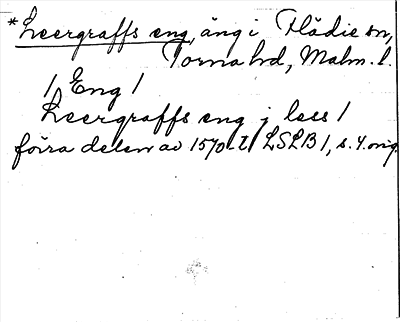 *Leergraffs eng, äng i Flädie sn,
Torna hd, Malm. l.
/ Eng /
Leergraffs eng j less /
förra delen av 1570-t. LSLB 1, s. 4. orig.